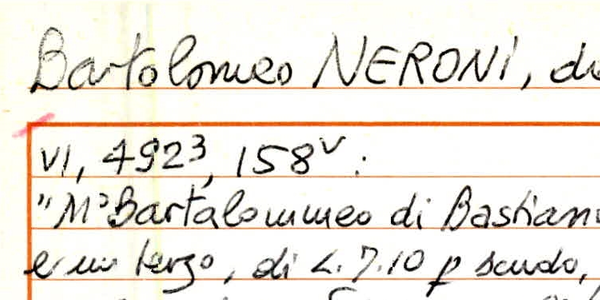 Bartolomeo NERONI, di
VI, 4923, 158v:
"Mo Bartalommeo di Bastian
e un terzo, di L. 7.10 p scudo,